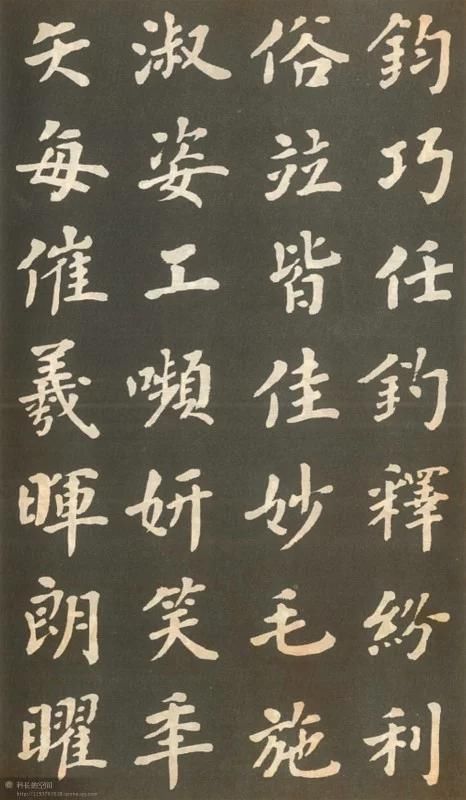 鈞巧任釣釋紛利
俗竝皆佳妙毛施
淑姿工嚬妍笑年
矢每催羲暉朗曜
科长的空间